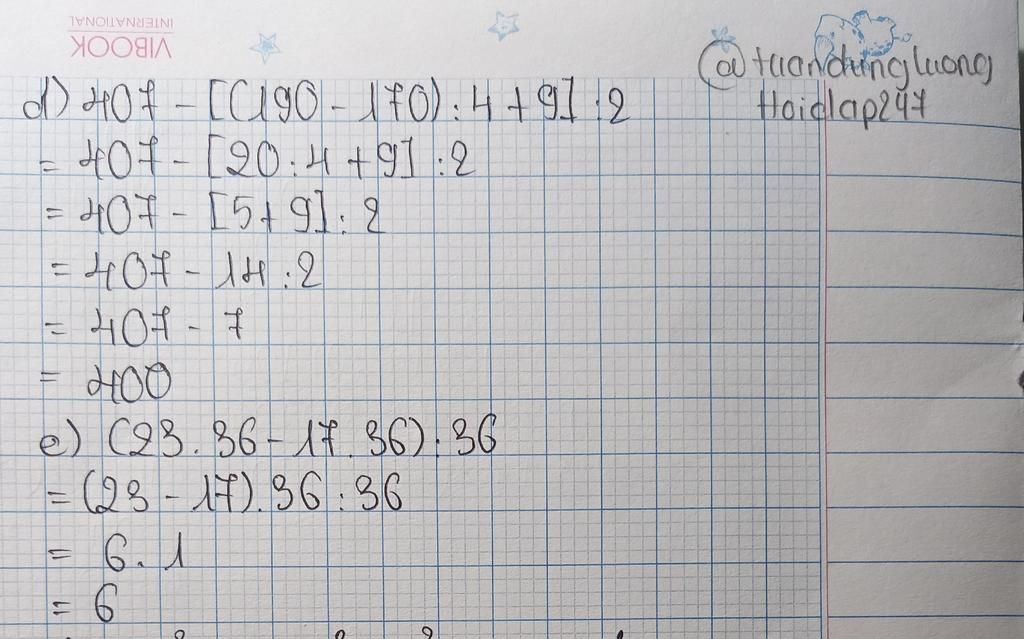 VIBOOK
INTERNATIONAL
@tuandungluong
Hoidap247
d) 407 - [(190 - 170) : 4 + 9] : 2
= 407 - [20 : 4 + 9] : 2
= 407 - [5 + 9] : 2
= 407 - 14 : 2
= 407 - 7
= 400
e) (23 . 36 - 17 . 36) : 36
= (23 - 17) . 36 : 36
= 6 . 1
= 6